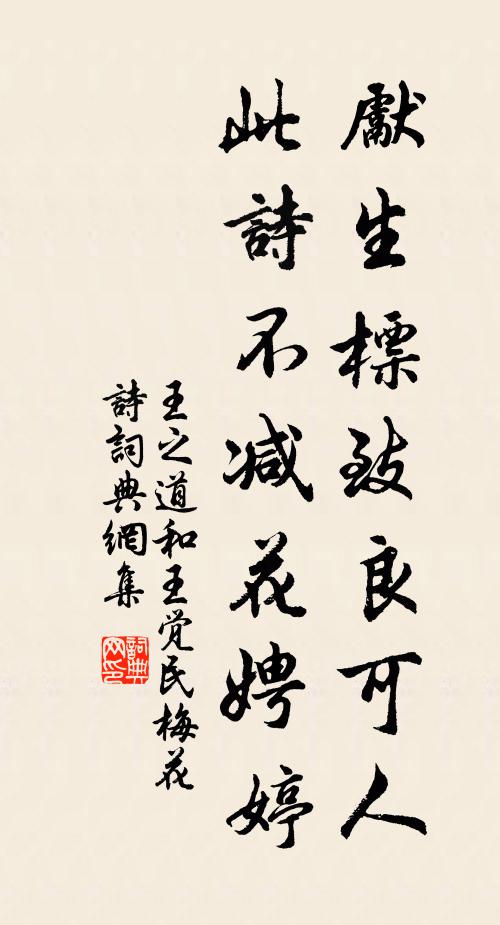 獻生標致良可人
此詩不減花娉婷
王之道和王覺民梅花
詩詞典網集
詞典網印